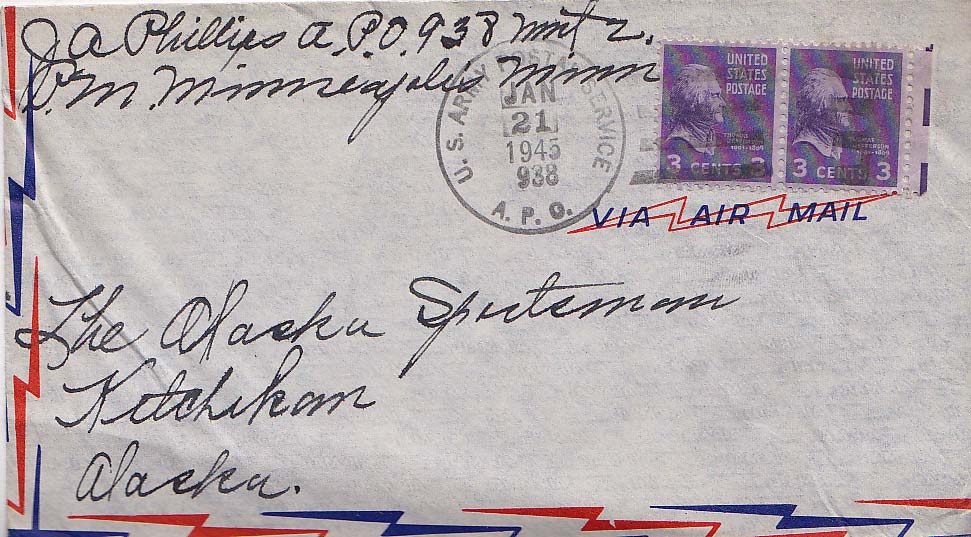 J A Phillips A.P.O. 938 Unit 2.
P.M. Minneapolis Minn
U.S. ARMY POSTAL SERVICE
JAN
21
1945
938
A.P.O.
UNITED
STATES
POSTAGE
THOMAS
JEFFERSON
1801-1809
3 CENTS 3
UNITED
STATES
POSTAGE
THOMAS
JEFFERSON
1801-1809
3 CENTS 3
VIA AIR MAIL
The Alaska Sportsman
Ketchikan
Alaska.